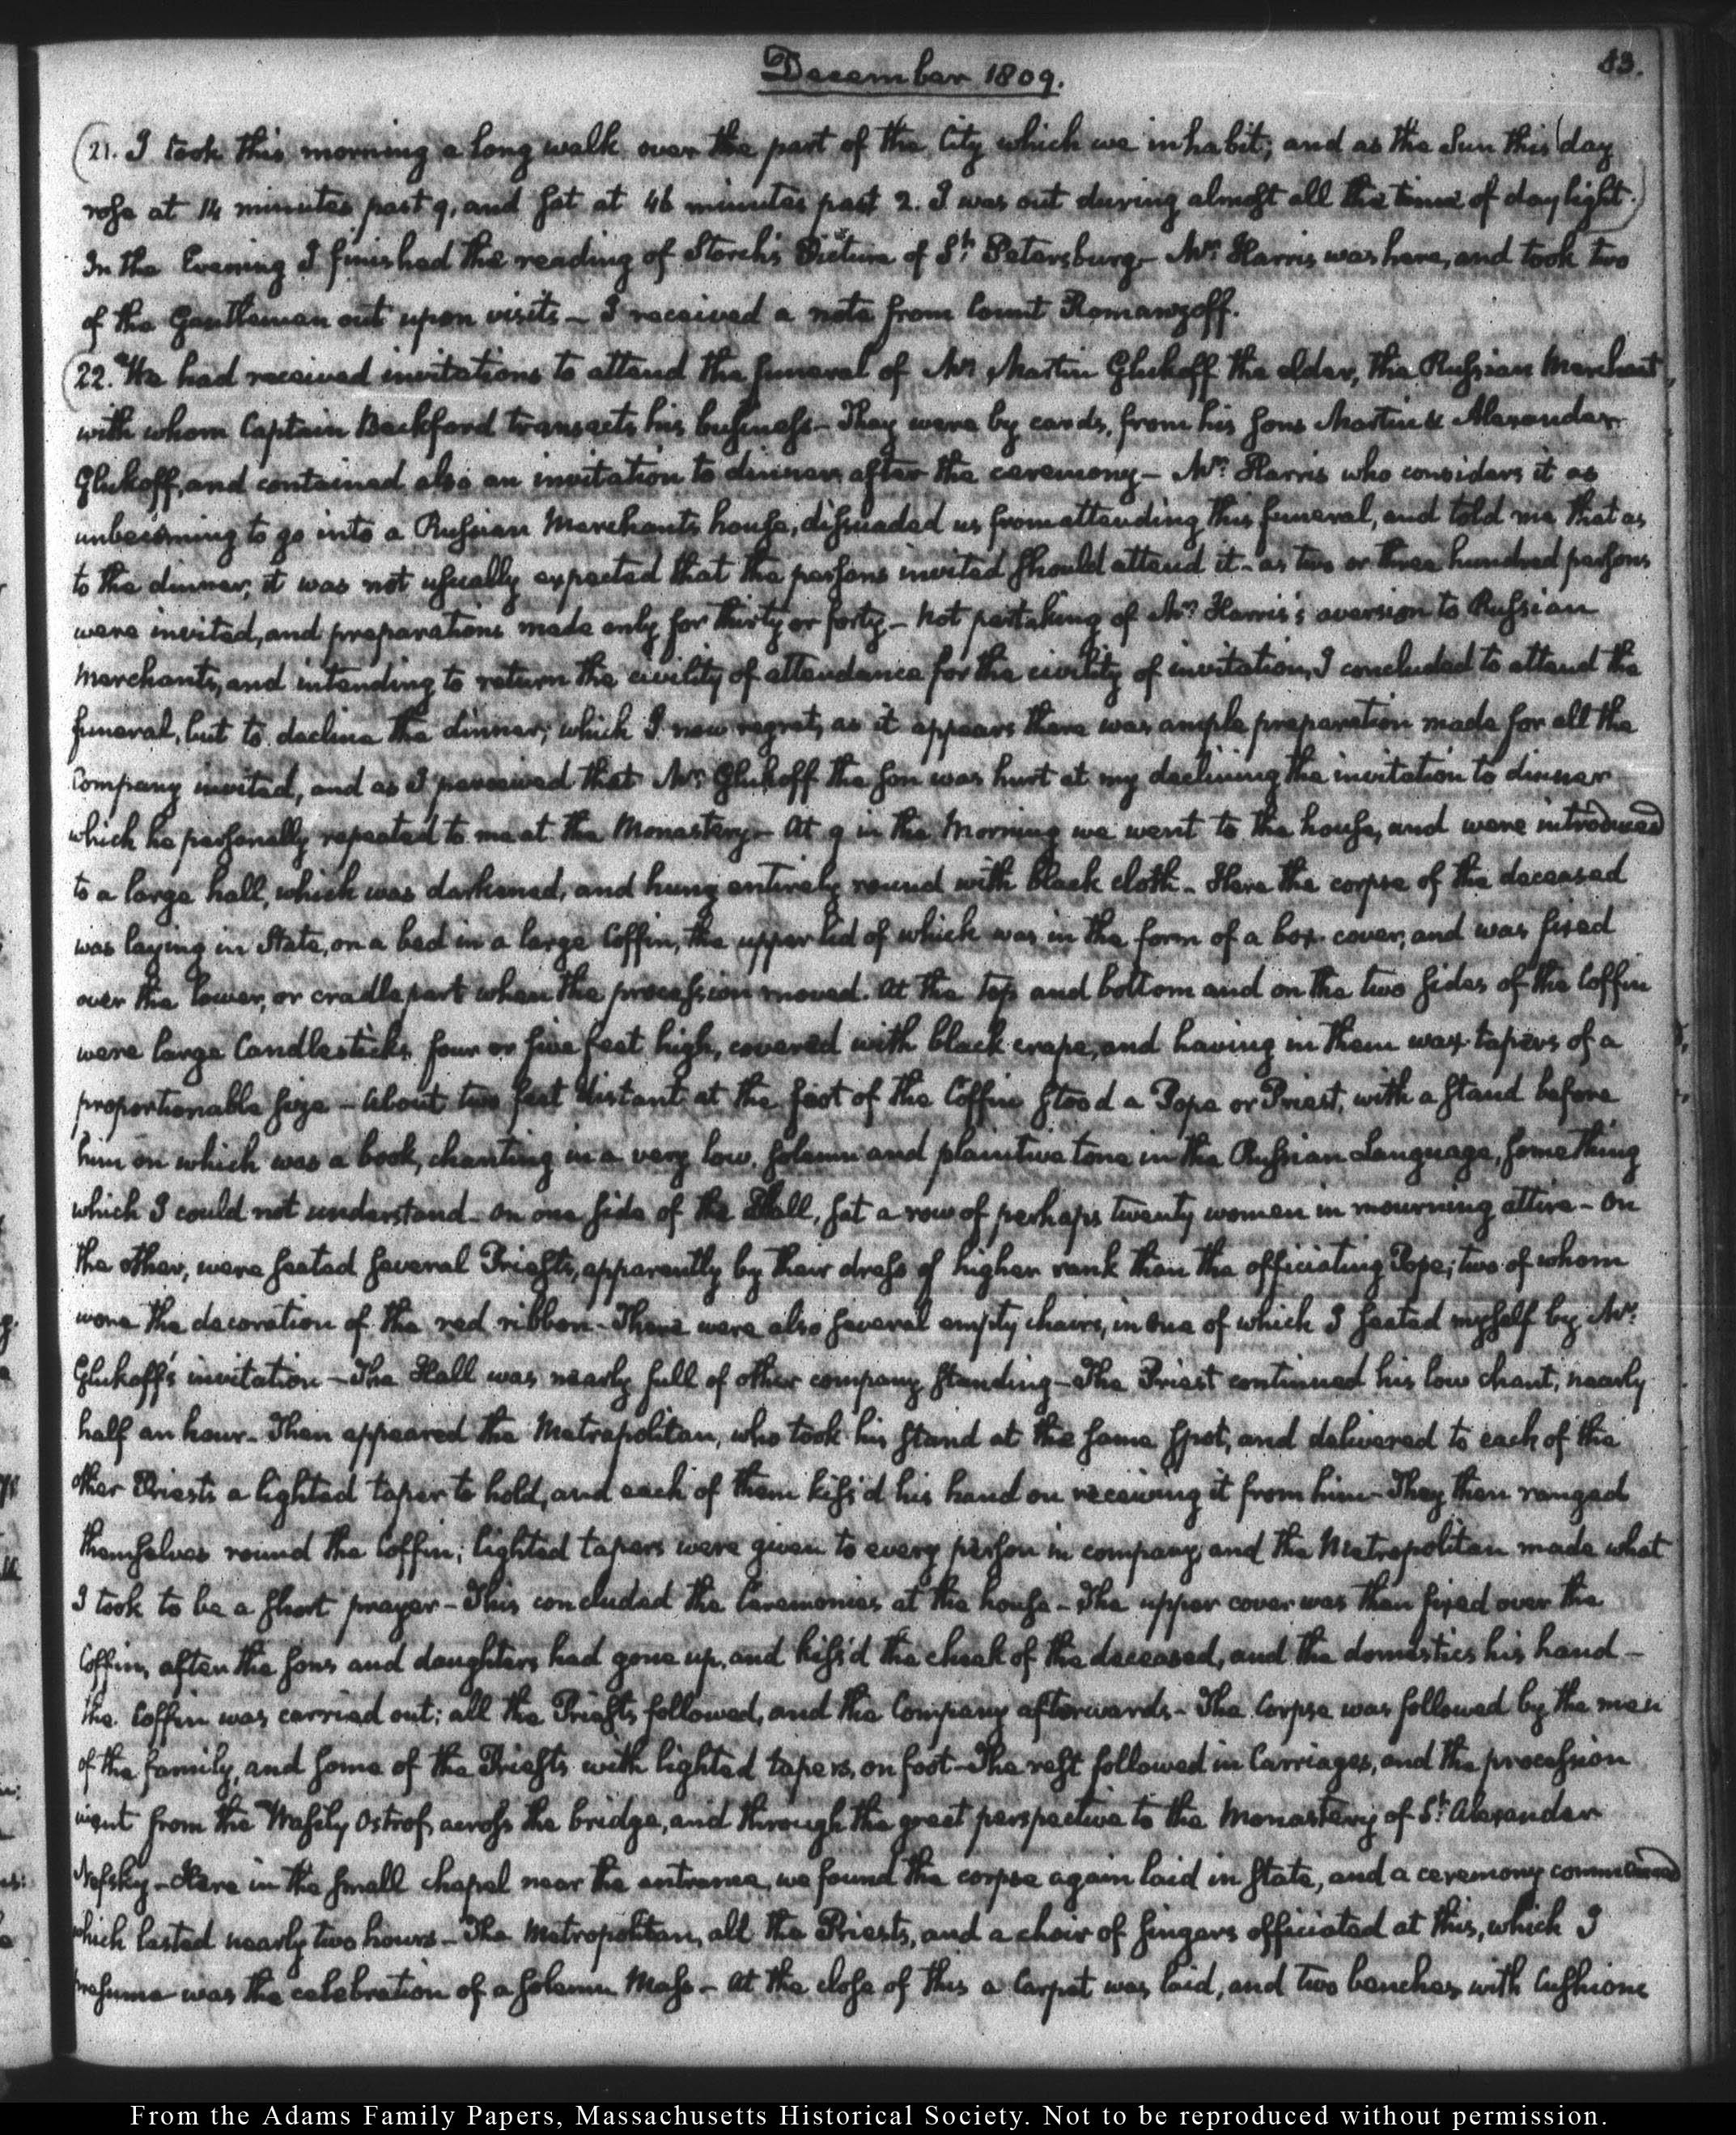 December 1809.
83.
21. I took this morning a long walk over the part of the City which we inhabit; and as the Sun this day
rose at 14 minutes past 9, and set at 46 minutes past 2. I was out during almost all the time of day light.
In the Evening I finished the reading of Storch's Picture of St. Petersburg— Mr. Harris was here, and took two
of the Gentlemen out upon visits— I received a note from Count Romanzoff.
22. We had received invitations to attend the funeral of Mr. Martin Glukoff the elder, the Russian Merchant,
with whom Captain Beckford transacts his business— They were by cards, from his sons Martin & Alexander
Glukoff, and contained also an invitation to dinner after the ceremony— Mr. Harris who considers it as
unbecoming to go into a Russian Merchants house, dissuaded us from attending this funeral, and told me that as
to the dinner, it was not usually expected that the persons invited should attend it— as two or three hundred persons
were invited, and preparations made only for thirty or forty— Not partaking of Mr. Harris's aversion to Russian
Merchants, and intending to return the civility of attendance for the civility of invitation, I concluded to attend the
funeral, but to decline the dinner; which I now regret, as it appears there was ample preparation made for all the
Company invited, and as I perceived that Mr. Glukoff the son was hurt at my declining the invitation to dinner
which he personally repeated to me at the Monastery— At 9 in the Morning we went to the house, and were introduced
to a large hall, which was darkened, and hung entirely round with black cloth— Here the corpse of the deceased
was laying in State, on a bed in a large Coffin, the upper lid of which was in the form of a box-cover, and was fixed
over the lower, or cradle part when the procession moved. At the top and bottom and on the two sides of the Coffin
were large Candlesticks four or five feet high, covered with black crape, and having in them wax-tapers of a
proportionable size— About two feet distant at the foot of the Coffin stood a Pope or Priest, with a stand before
him on which was a book, chanting in a very low, solemn and plaintive tone in the Russian Language, something
which I could not understand— On one side of the Hall, sat a row of perhaps twenty women in mourning attire— On
the other, were seated several Priests, apparently by their dress of higher rank than the officiating Pope; two of whom
wore the decoration of the red ribbon— There were also several empty chairs, in one of which I seated myself by Mr.
Glukoff's invitation— The Hall was nearly full of other company standing— The Priest continued his low chant, nearly
half an hour— Then appeared the Metropolitan, who took his stand at the same spot, and delivered to each of the
other Priests a lighted taper to hold, and each of them kiss'd his hand on receiving it from him— They then ranged
themselves round the Coffin; lighted tapers were given to every person in company, and the Metropolitan made what
I took to be a short prayer— This concluded the Ceremonies at the house— The upper cover was then fixed over the
Coffin, after the sons and daughters had gone up, and kiss'd the cheek of the deceased, and the domestics his hand—
the Coffin was carried out; all the Priests followed, and the Company afterwards— The Corpse was followed by the men
of the family, and some of the Priests with lighted tapers, on foot— The rest followed in Carriages, and the procession
went from the Wasily Ostrof, across the bridge, and through the great perspective to the Monastery of St. Alexander
Nefsky— Here in the small chapel near the entrance, we found the corpse again laid in state, and a ceremony commenced
which lasted nearly two hours— The Metropolitan, all the Priests, and a choir of singers officiated at this, which I
presume was the celebration of a solemn Mass— At the close of this a Carpet was laid, and two benches with Cushions
From the Adams Family Papers, Massachusetts Historical Society. Not to be reproduced without permission.